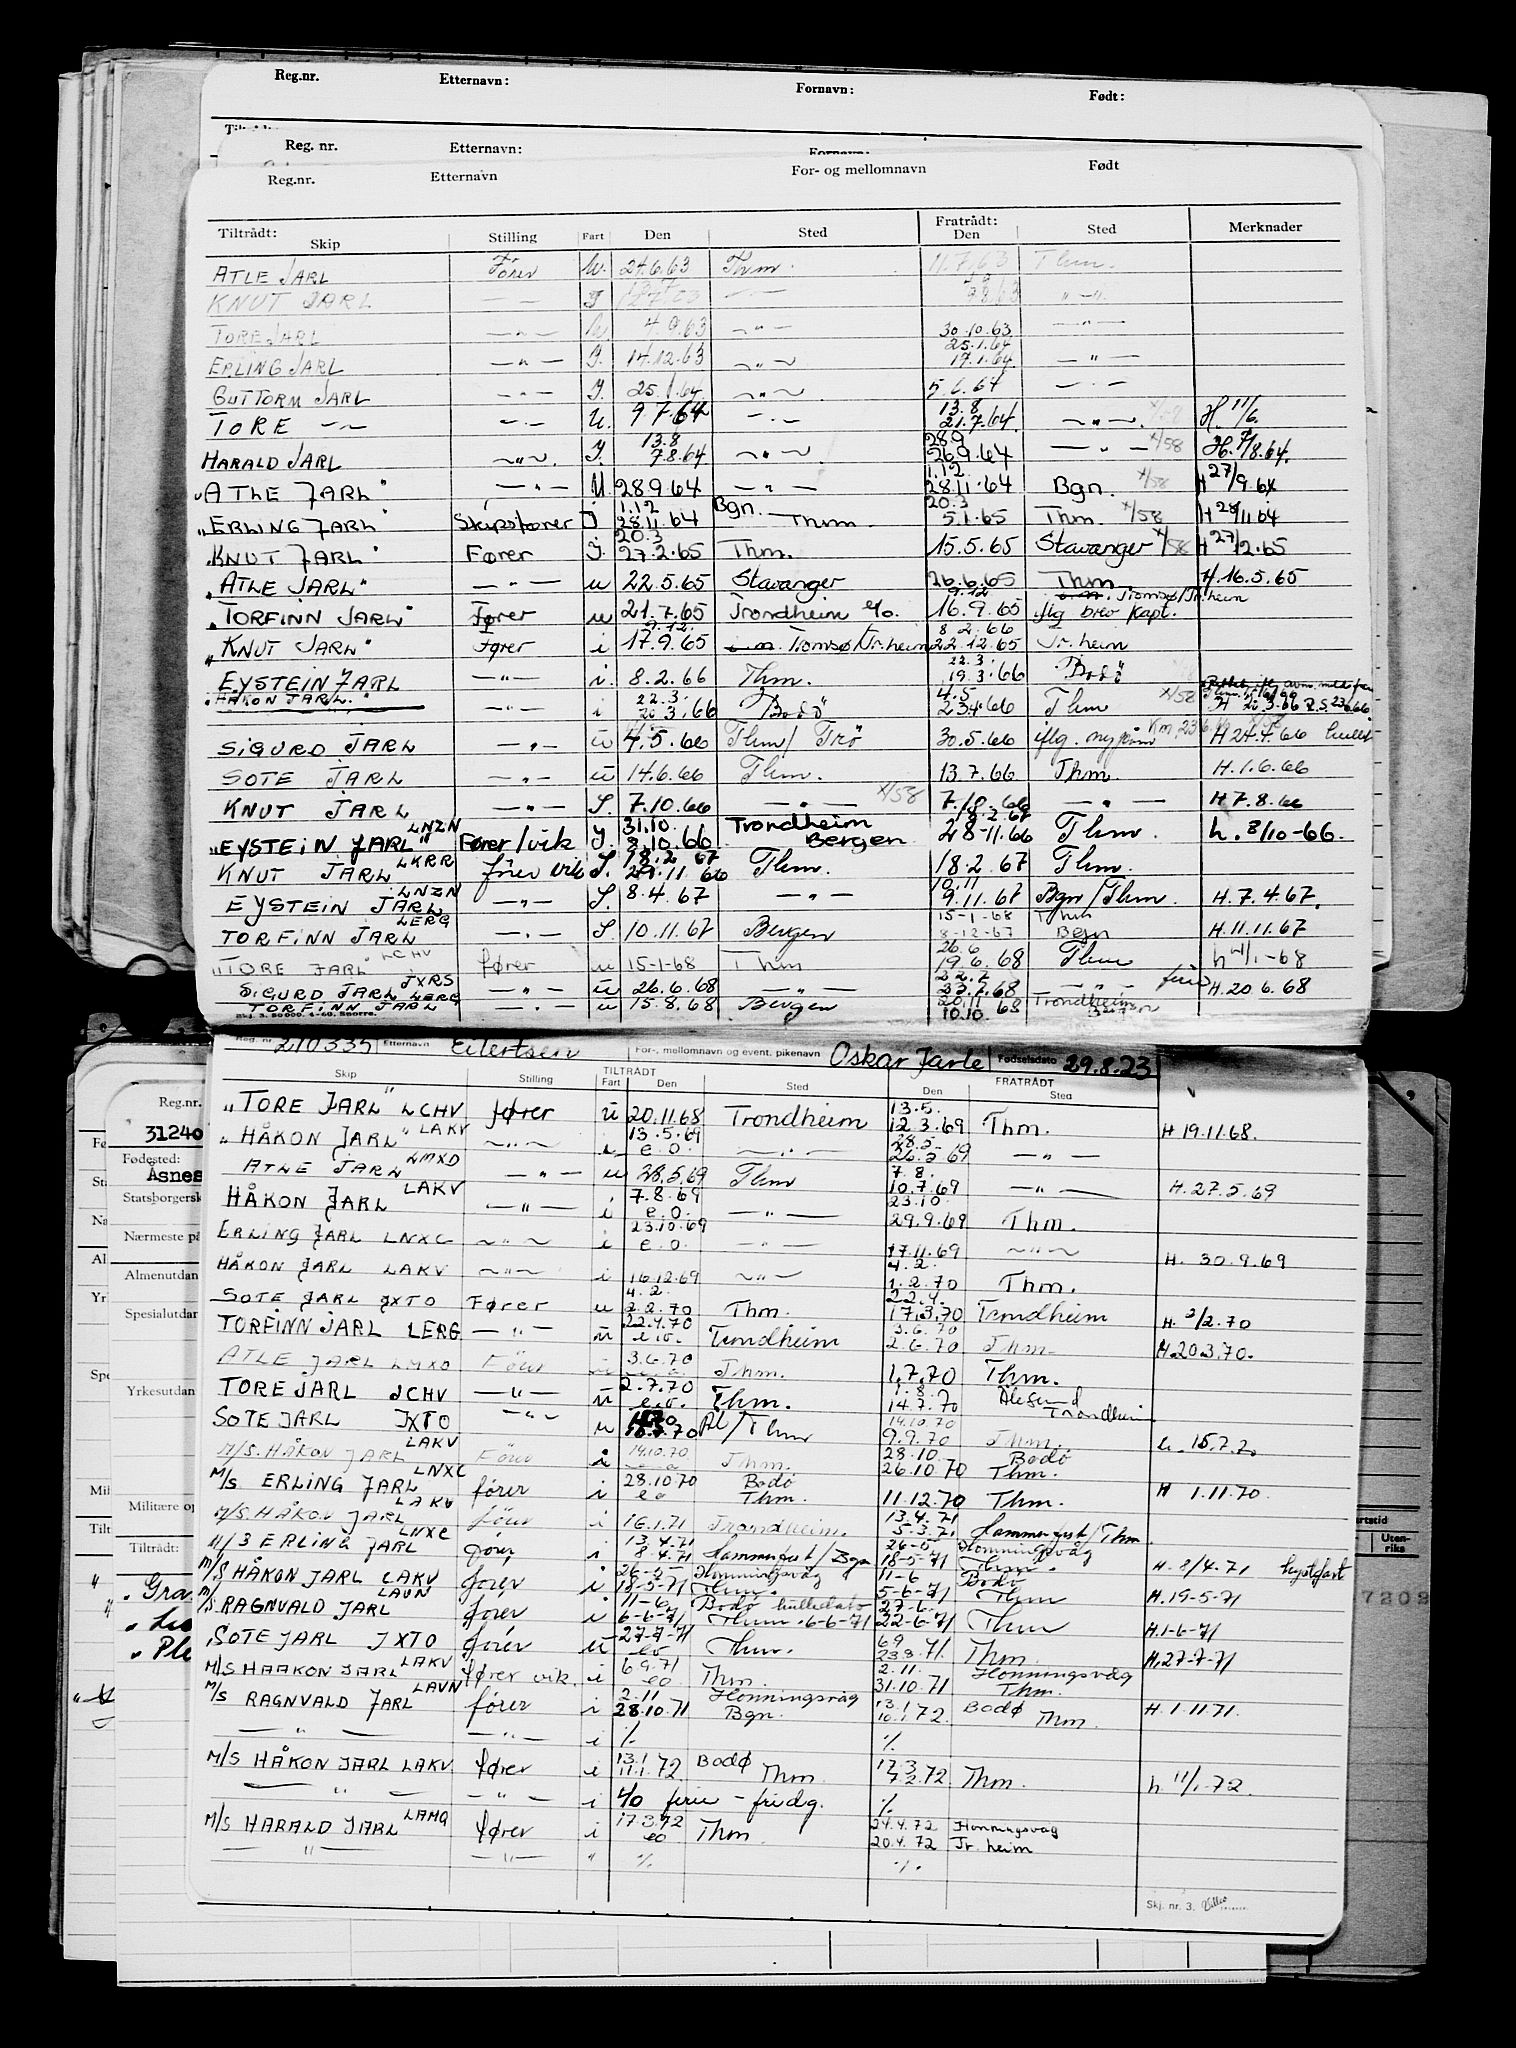 Reg.nr. Etternavn: Fornavn: Født:
Reg. nr. Etternavn:
Reg.nr. Etternavn For- og mellomnavn Født
Tiltrådt: Fratrådt:
Skip Stilling Fart Den Sted Den Sted Merknader
ATLE JARL Fører U. 24.6.63 Thm. 11.7.63 Thm.
KNUT JARL — " — 63 — " —
TORE JARL — " — U 4.9.63 — " — 30.10.63 — " —
25.1.64
ERLING JARL — " — I. 14.12.63 — " — 17.1.64 — " —
GUTTORM JARL — " — I. 25.1.64 — " — 5.6.64 — " —
13.8
TORE — " — — " — U. 9.7.64 — " — 21.7.64. — " — x/58 H. 11/6.
13.8 28.9
HARALD JARL — " — I. 7.8.64 — " — 26.9.64 — " — x/58 H. 7/8.64.
1.12
"ATLE JARL" — " — U 28.9.64 — " — 28.11.64 Bgn. x/58 H 27/9.64
1.12 Bgn. 20.3
"ERLING JARL" Skipsfører I 28.11.64 Thm. 5.1.65 Thm. x/58 H 28/11 64
20.3
"KNUT JARL" Fører I. 27.2.65 Thm. 15.5.65 Stavanger x/58 H 27/2.65
"ATLE JARL" — " — u 22.5.65 Stavanger 26.6.65 Thm. H.16.5.65
9.12 Tromsø/Tr.heim
"TORFINN JARL" Fører u 21.7.65 Trondheim e/o. 16.9.65 iflg brev Kapt.
9.12. 8.2.66
"KNUT JARL" Fører i 17.9.65 Tromsø/Tr.heim 22.12.65 Tr.heim
22.3.
EYSTEIN JARL — " — i. 8.2.66 Thm. 19.3.66 Bodø
22.3. 4.5
"HÅKON JARL." — " — i 20.3.66 Bodø 23.4.66 Thm x/58 H 20.3.66
SIGURD JARL — " — u 4.5.66 Thm/Trö 30.5.66 iflg. H 24.4.66
SOTE JARL — " — u 14.6.66 Thm. 13.7.66 Thm. H.1.6.66
KNUT JARL — " — I. 7.10.66 — " — x/58 7.10.66 — " — H 7.8.66
LNZN 31.10. Trondheim 18.2.67
"EYSTEIN JARL" Fører/vik I. 8.10.66 Bergen 28-11.66 Thm. h. 8/10-66.
LKRR 18.2 67
KNUT JARL fører vik I. 28.11 66 Thm. 18.2 67 Thm.
LNZN 10.11
EYSTEIN JARL — " — I. 8.4.67 — " — 9.11.67 Bgn/Thm. H.7.4.67.
LERG 15-1-68 Thm
TORFINN JARL — " — I 10.11.67 Bergen 8-12-67 Bgn H.11.11.67
LCHV 26.6
"TORE JARL" fører u 15-1-68 Thm 19.6.68 Thm h /1-68
JXRS 22.7
SIGURD JARL — " — u 26.6.68 — " — 23.7.68 — " — ferie H.20 6.68
LERG 20.11
TORFINN JARL — " — u 15.8.68 Bergen 10.10. 68 Trondheim
Reg. nr. 210335 Etternavn Eilertsen For-, mellomnavn og event. pikenavn Oskar Jarle Fødselsdato 29.8.23
TILTRÅDT FRATRÅDT
Skip Stilling Fart Den Sted Den Sted
13.5.
"TORE JARL" LCHV fører u 20.11.68 Trondheim 12.3.69 Thm. H 19.11.68.
13.5.69 28.5.
"HÅKON JARL" LAKV — " — i e.o. — " — 26.5.69 — " —
7.8.
ATLE JARL LMXD — " — u 28.5.69 Thm 10.7.69 — " — H.27.5.69
7.8.69 23.10.
HÅKON JARL LAKV — " — i e.o. — " — 29.9.69 Thm.
23.10.69
ERLING JARL LNXC — " — i e.o. — " — 17.11.69 — " — H. 30.9.69
4.2.
HÅKON JARL LAKV — " — i 16.12.69 — " — 1.2.70 Thm.
4.2. 22.4.
SOTE JARL JXTO Fører u 2.2.70 Thm. 17.3.70 Trondheim H. 2/2.70
22.4.70 3.6.70
TORFINN JARL LERG — " — u e.o. Trondheim 2.6.70 Thm. H.20.3.70.
3.6.70
ATLE JARL LMXD Fører Thm. 1.7.70 Thm.
2.7.70 1.8.
TORE JARL LCHV — " — u e.o. Thm. 14.7.70 Ålesund Trondheim
14.10.70
SOTE JARL JXTO — " — u Ål/Thm 9.9.70 Thm. h. 15.7.70
14.10.70 28.10. Bodø
M/S. HÅKON JARL LAKV Fører i Thm. 26.10.70 Thm.
28.10.70 Bodø
M/S ERLING JARL LNXC fører i eo Thm. 11.12.70 Thm. H 1.11.70.
13.4.71
M/S. HÅKON JARL LAKV fører i 16.1.71 Trondheim. 5-3.71 Hammerfest/Thm.
13.4.71 26-5 Honningsvåg
M/S ERLING JARL LNXC fører i 8.4.71 Hammerfest/Bgn 18-5-71 Thm. H. 8/4.71
26-5 Honningsvåg 11-6 Bodø
M/S HÅKON JARL LAKV fører i 18-5-71 Thm. 5-6-71 Thm H.19-5-71
11-6 Bodø 27-6.
M/S RAGNVALD JARL LAVN fører i 6-6-71 Thm. 6-6-71 22-6-71 Thm H.1-6-71
27-7-71 6.9
SOTE JARL JXTO fører u eo Thm. 23.8.71 Thm. H.27-7-71
6.9.71 2.11. Honningsvåg
M/S HAAKON JARL LAKV fører vik. i eo Thm. 31.10.71 Thm.
2.11 Honningsvåg 13.1 Bodø
M/S RAGNVALD JARL LAVN fører i 28.10.71 Bgn. 10.1.72 Thm. H.1.11.71.
— " — — " — i % %
13.1 Bodø 17.3
M/S HÅKON JARL LAKV fører i 11.1.72 Thm. 7.2.72 Thm. h 11/1.72.
— " — — " — i 4/0 ferie - fridg. %
17.3.72 24.4.72 Honningsvåg
M/S HARALD JARL LAMQ fører i eo Thm. 20.4.72 Tr.heim
— " — — " — " % %
Skj. nr. 3.
Reg.nr.
31240
Fødested:
Åsnes
Statsborgersk
Nærmeste på
Almenutdan
Spesialutdan
Yrkesutdan
Militære op
Tiltrådt:
Gra
Ple
Uten-
riks
7202